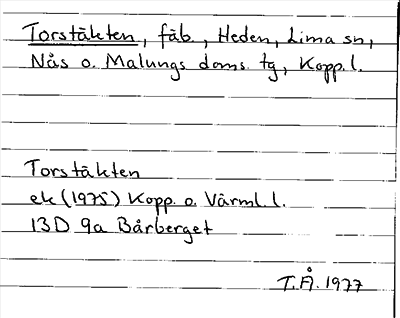 Torstäkten, fäb., Heden, Lima sn,
Nås o. Malungs doms. tg, Kopp. l.
Torstäkten
ek (1975) Kopp. o. Värml. l.
13D 9a Bårberget
T.Å. 1977